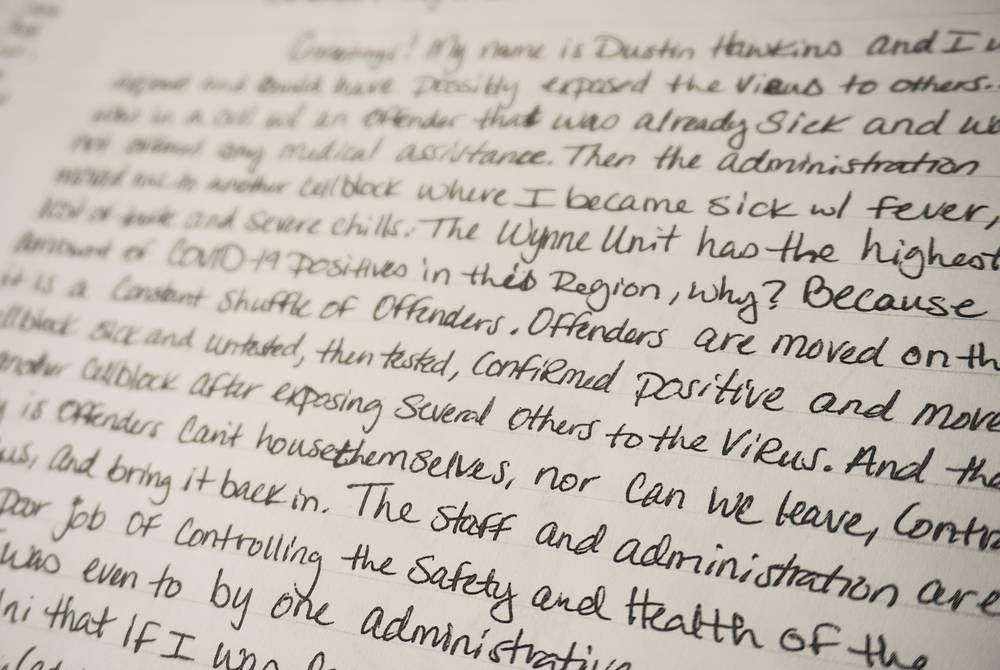 Greetings! My name is Dustin Hawkins and I w
and could have possibly exposed the Virus to others.
in a cell w/ an offender that was already Sick and we
any medical assistance. Then the administration
moved me to another cellblock where I became sick w/ fever,
and severe chills. The Wynne Unit has the highest
amount of COVID-19 positives in this Region, why? Because
it is a constant shuffle of Offenders. Offenders are moved on th
llblock sick and untested, then tested, confirmed positive and move
another cellblock after exposing Several others to the Virus. And the
y is offenders can't house themselves, nor can we leave, contra
us, and bring it back in. The staff and administration are
poor job of controlling the Safety and Health of the
was even to by one administrative
ni that if I was